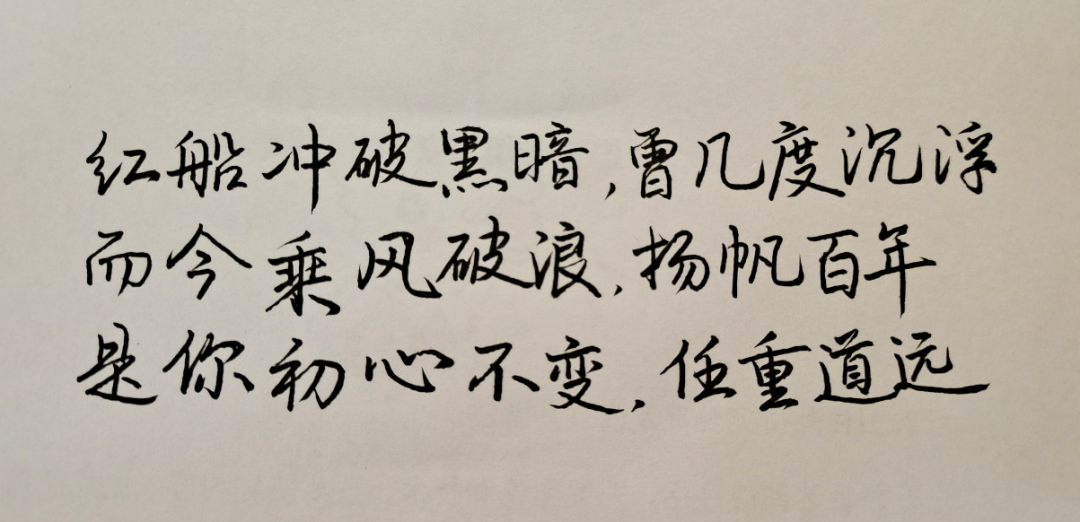 红船冲破黑暗,曾几度沉浮
而今乘风破浪,扬帆百年
是你初心不变,任重道远